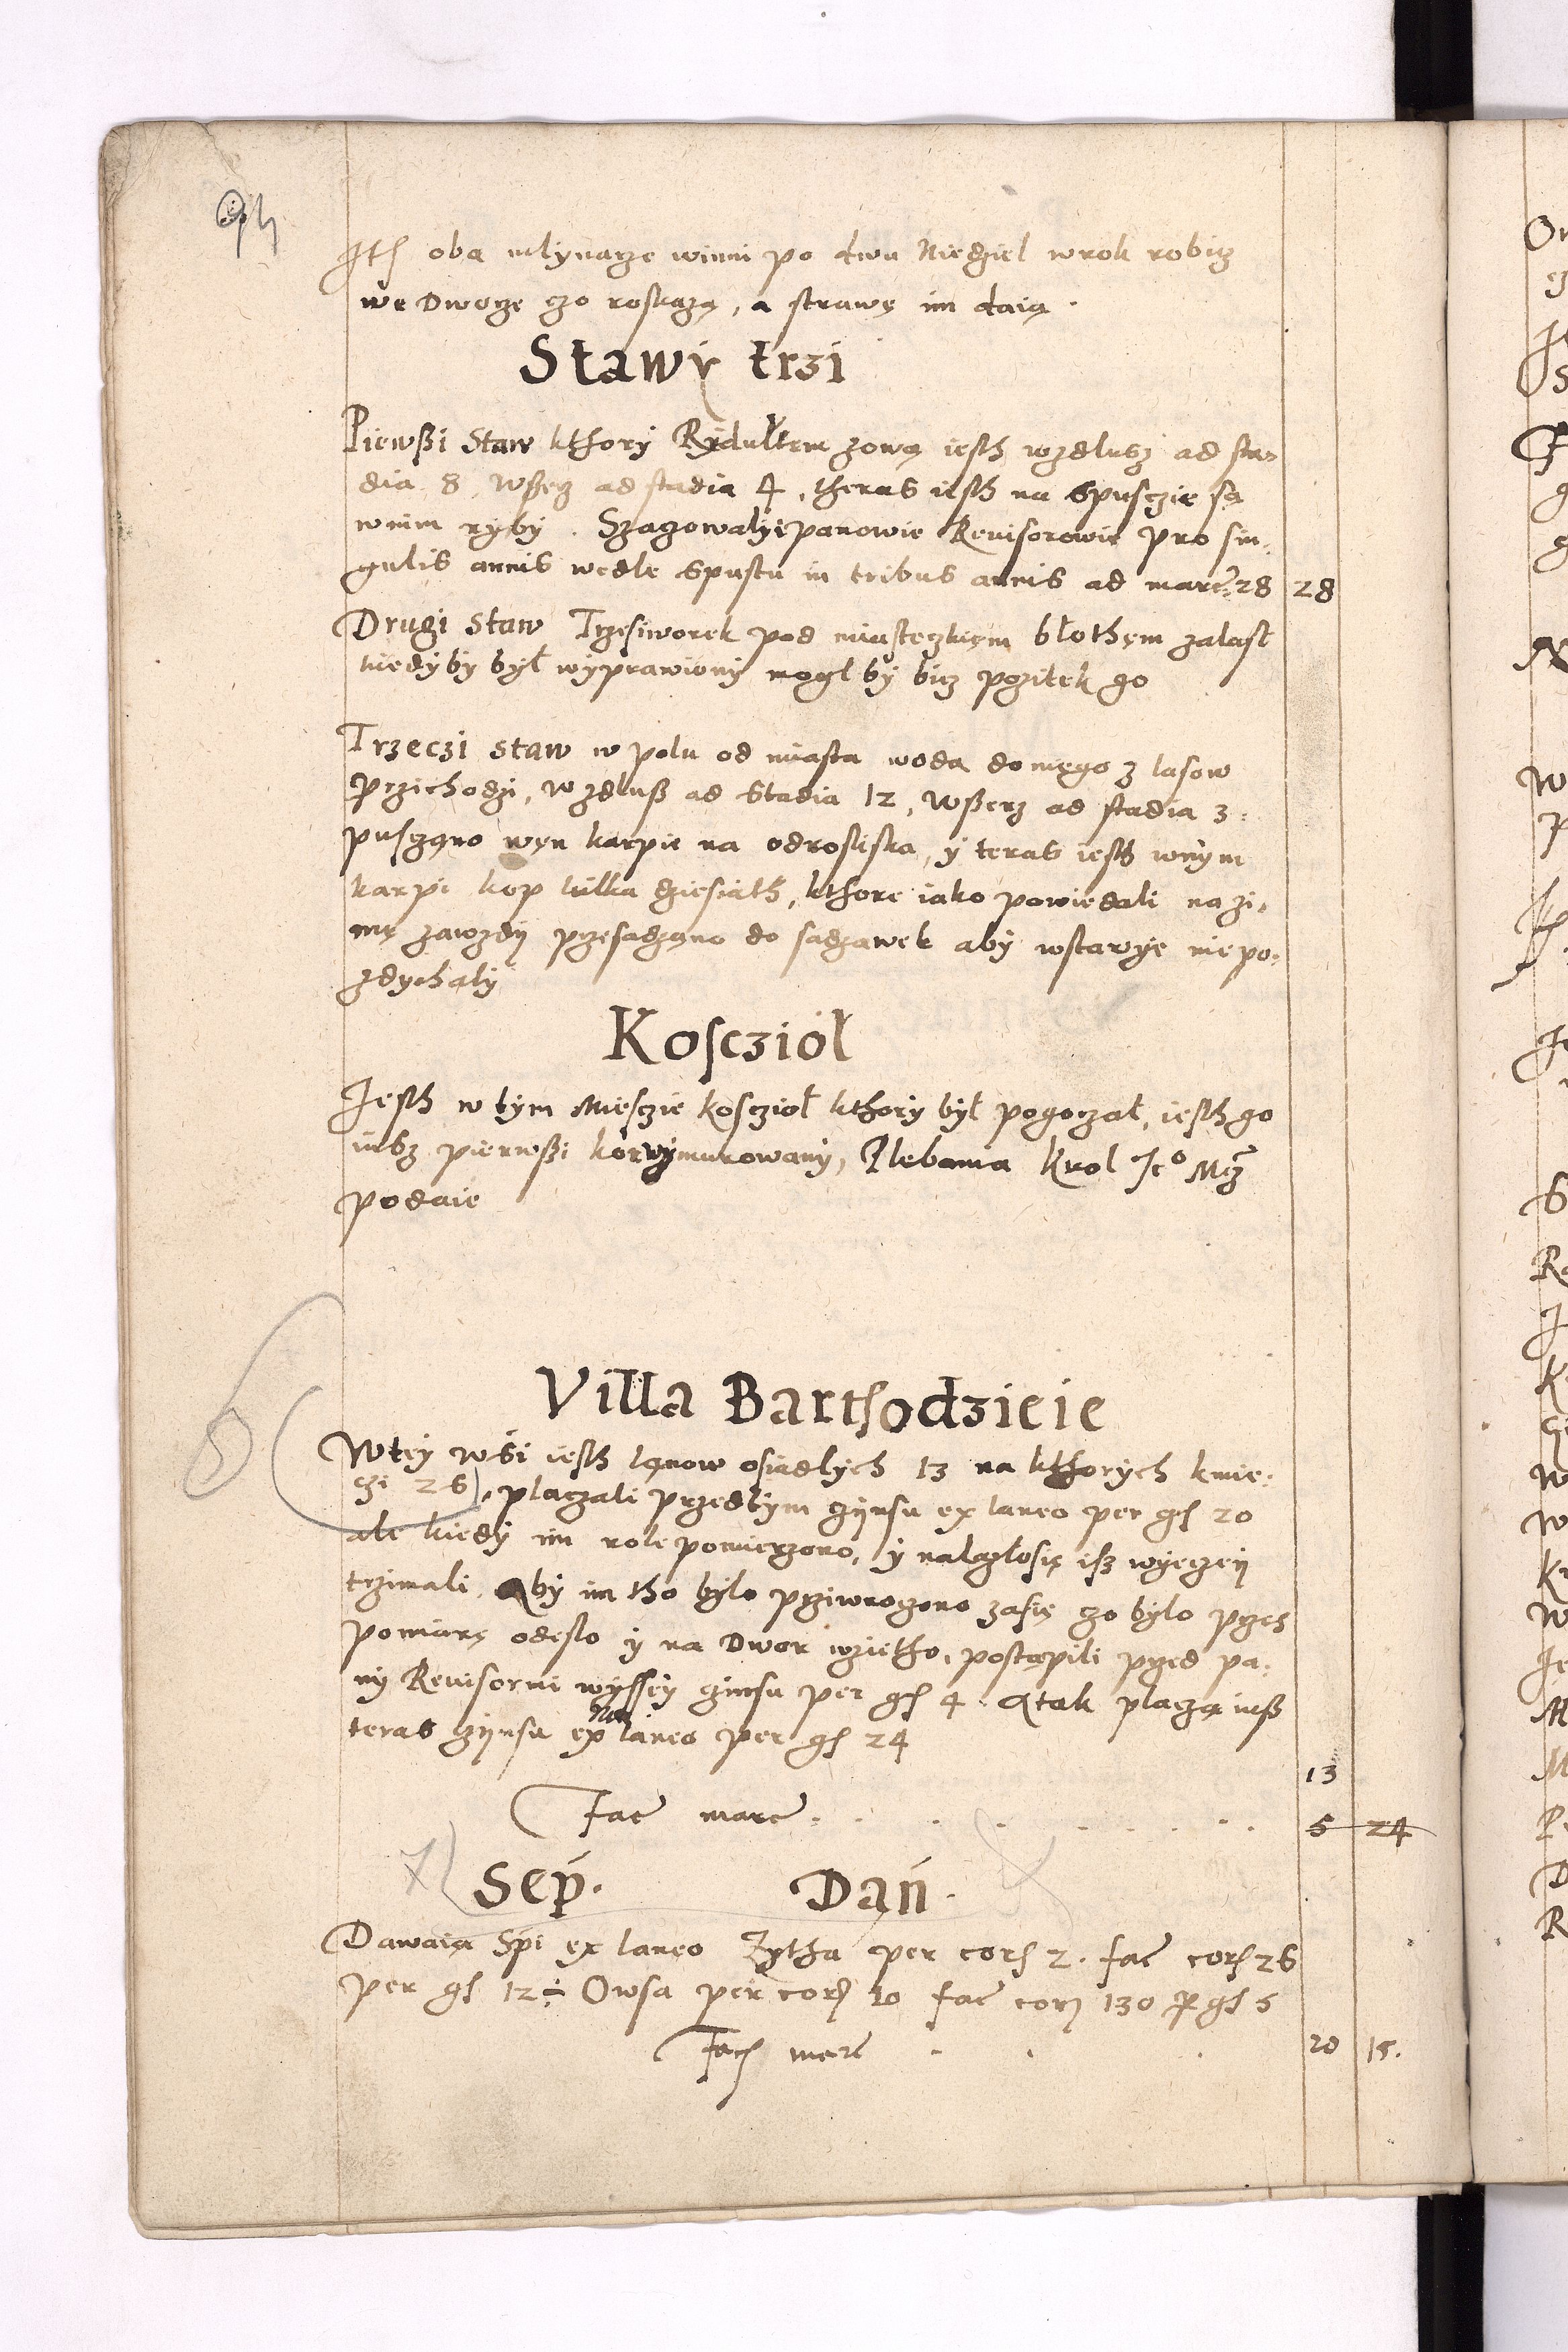 Ité oba mlynarze winni po dwu Niedziel wrok robicz
we Dworze czo roskażą, a strawę im daią.
Stawy trzi
Pierwßi Staw kthory Rydułtem zową iesth wzdlusz ad sta-
dia 8, wßerz ad stadia 4, theras iesth na spusczie są
wnim ryby. Szaczowalyi panowie Revisorowie pro sin-
gulis annis wedle spustu in tribus annis ad marc: 28 28
Drugi staw Trzesiworek pod miasteczkiem błothem zalasl
kiedyby był wyprawiony mogł by bicz pozitek go
Trzeczi staw w polu od miasta woda do niego z lasow
przichodzi, wzdluß ad stadia 12, wßerz ad stadia 3:
pusczano weń karpie na odrosliska, y teras iesth wnym
karpi kop kilka dziesiath, kthore iako powiedali na zi-
mę zawzdy przesadzano do sadzawek aby wstawye nie po-
zdychaly
Koscziół
Iesth w tym miesczie koscziol kthory był pogorzał, iesth go
iusz pierwßi kor wymurowany, Plebania Krol Jeº Mcz
podaie
Villa Barthodzieie
W tey wsi iesth lanow osiadlych 13 na kthorych kmie-
czi 26, placzali przedtym czynsu ex laneo per gs 20
ale kiedy im role pomierzono, y nalazło się isz wyeczey
trzimali. Aby im tho bylo prziwroczono zasię czo bylo przes
pomiarę odeslo y na Dwor wzietho, postąpili przed pa-
ny Revisormi wyssey czinsu per gs 4. A tak placzą iuß
teras czynsu ex laneo per gs 24
13
Fac marc . . . . . . 5 24
Sep. Dań.
Dawaią Spi ex laneo Zytha per cors 2. fac cors 26
per gs 12÷ Owsa per cors 10 fac cors 130 p gs 5
Fac marc . . . 20 15.